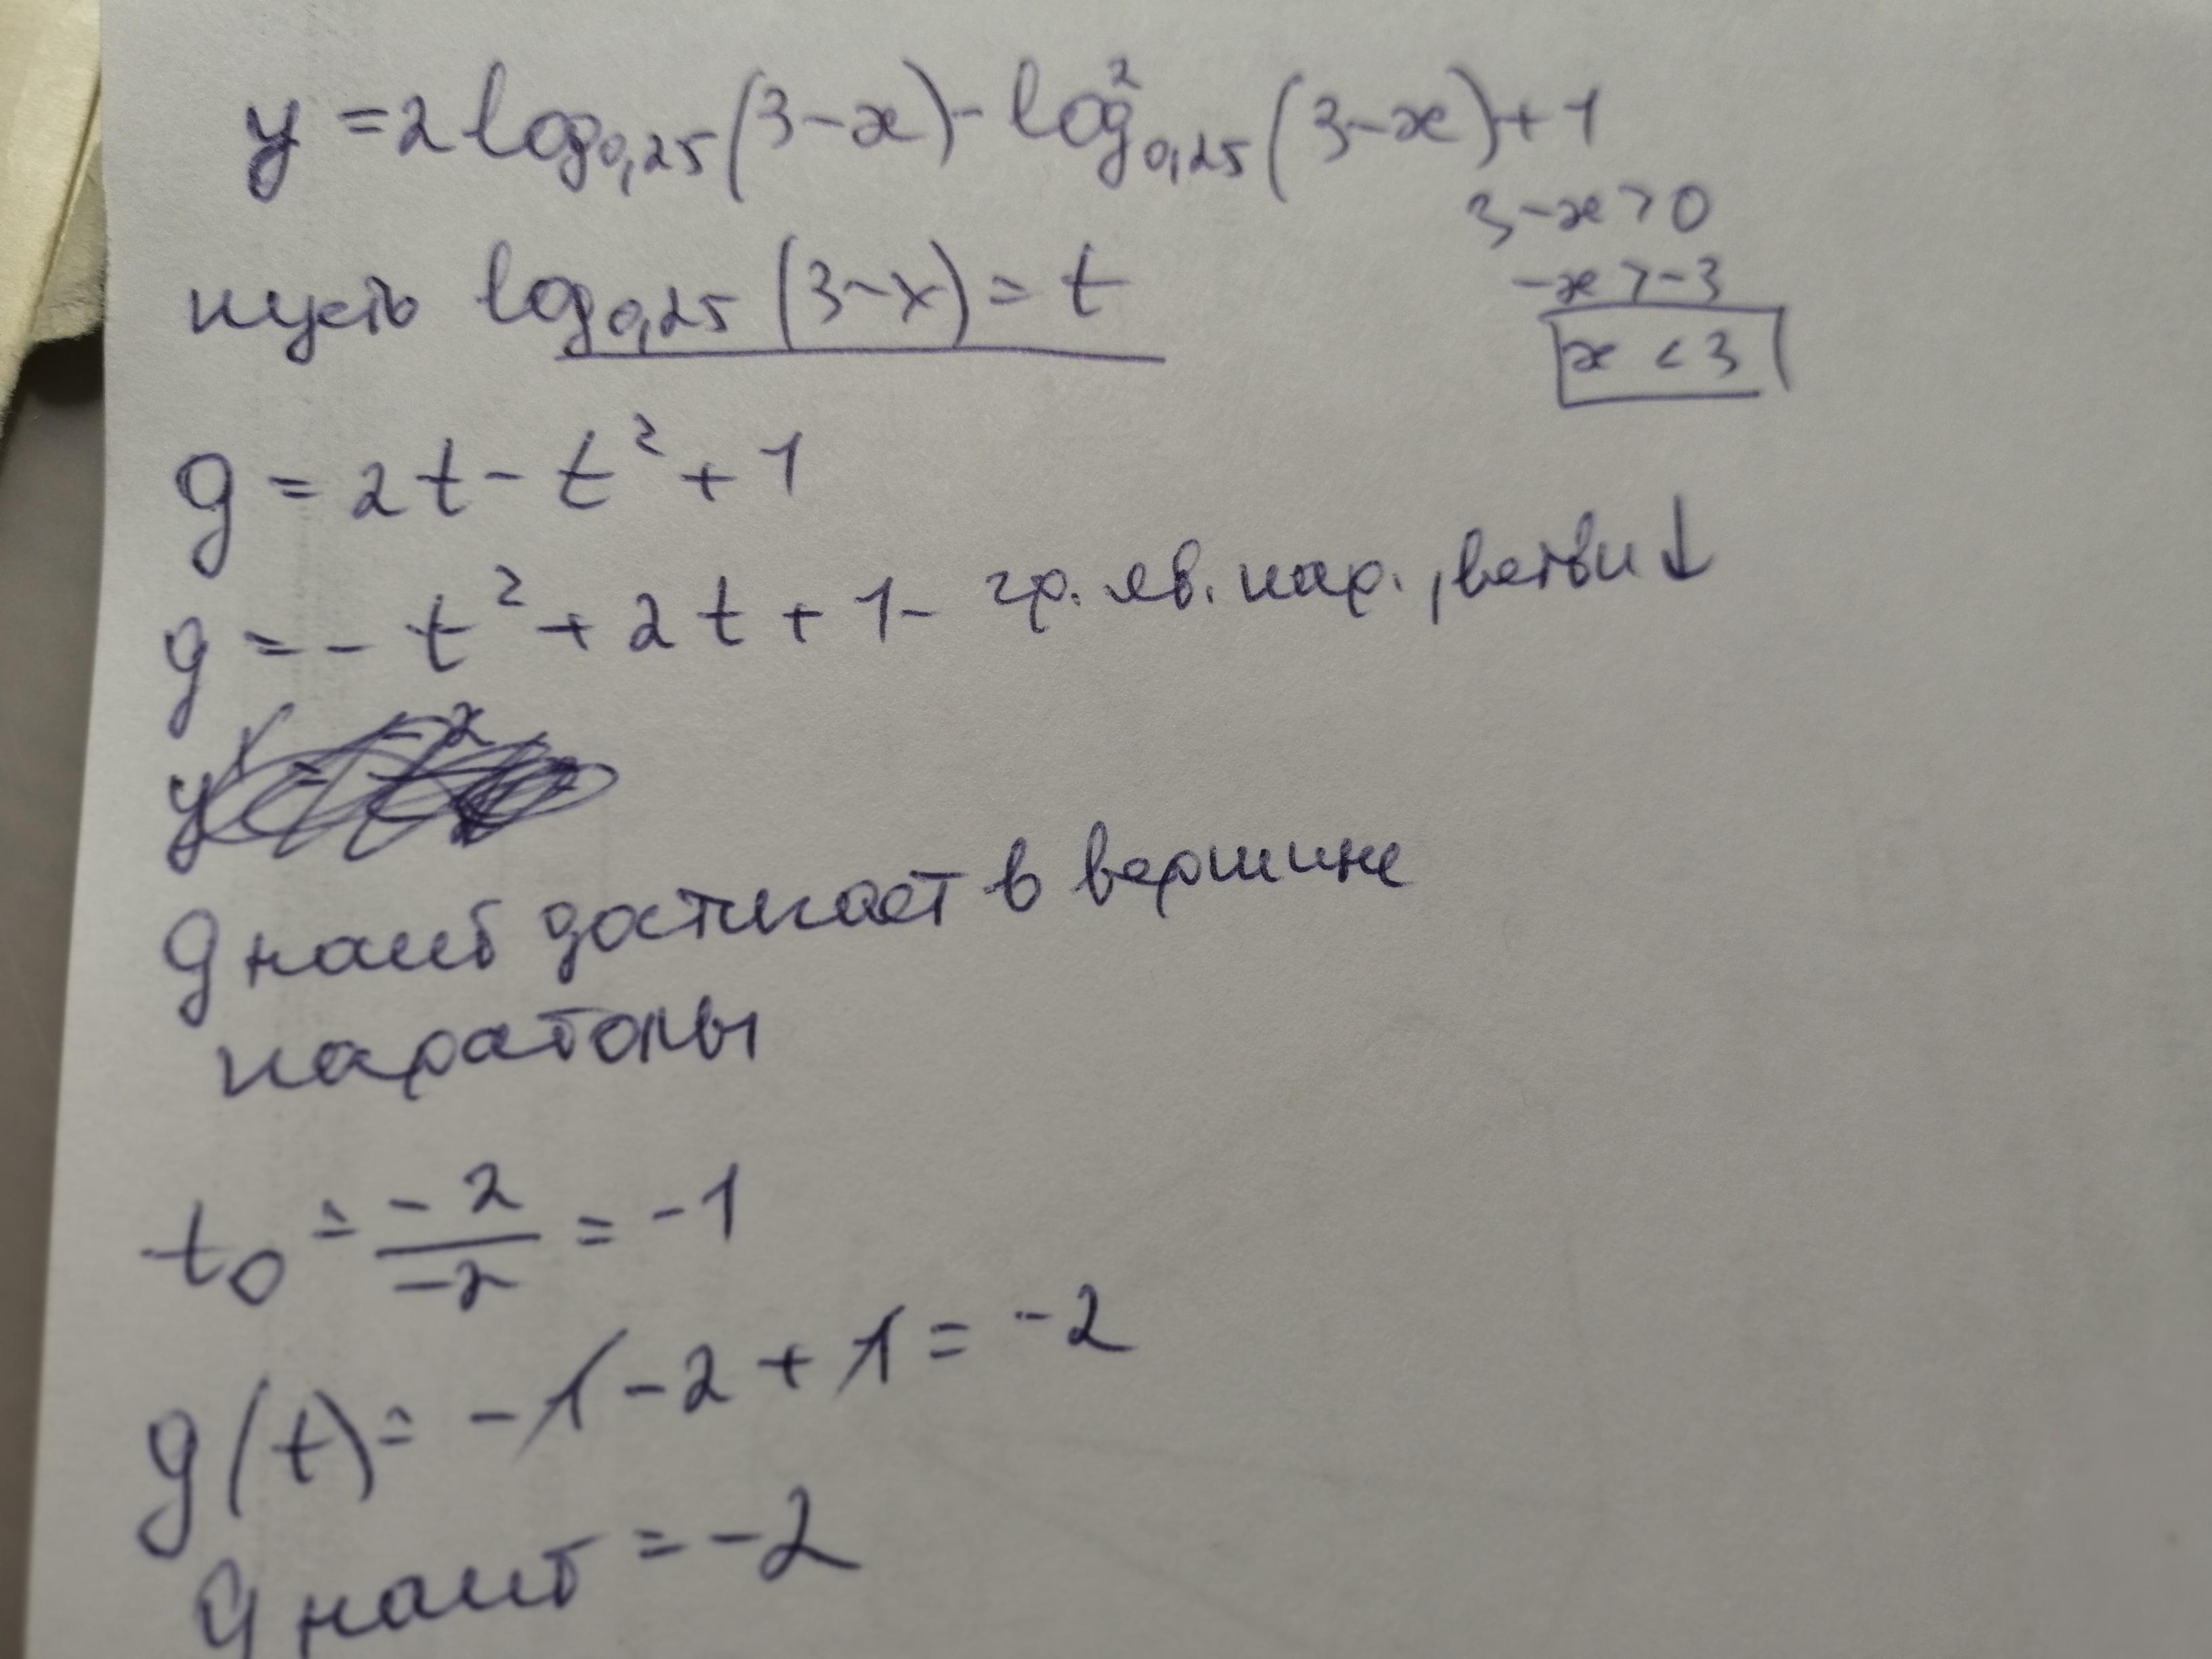 y = 2 log₀,₂₅ (3-x) - log²₀,₂₅ (3-x) + 1
3-x > 0
-x > -3
x < 3
пусть log₀,₂₅ (3-x) = t
g = 2t - t² + 1
g = - t² + 2t + 1 - гр. яв. пар., ветви ↓
g наиб достигает в вершине
параболы
t₀ = -2/-2 = -1
g(t) = -1 - 2 + 1 = -2
g наиб = -2